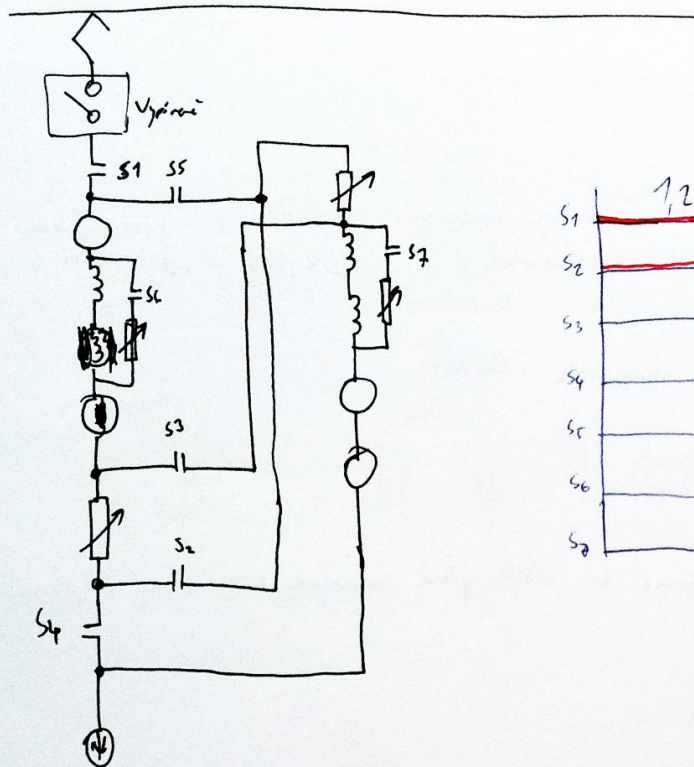 Vypínač
S1
S5
S6
S7
S3
S2
S4
1,2
S1
S2
S3
S4
S5
S6
S7